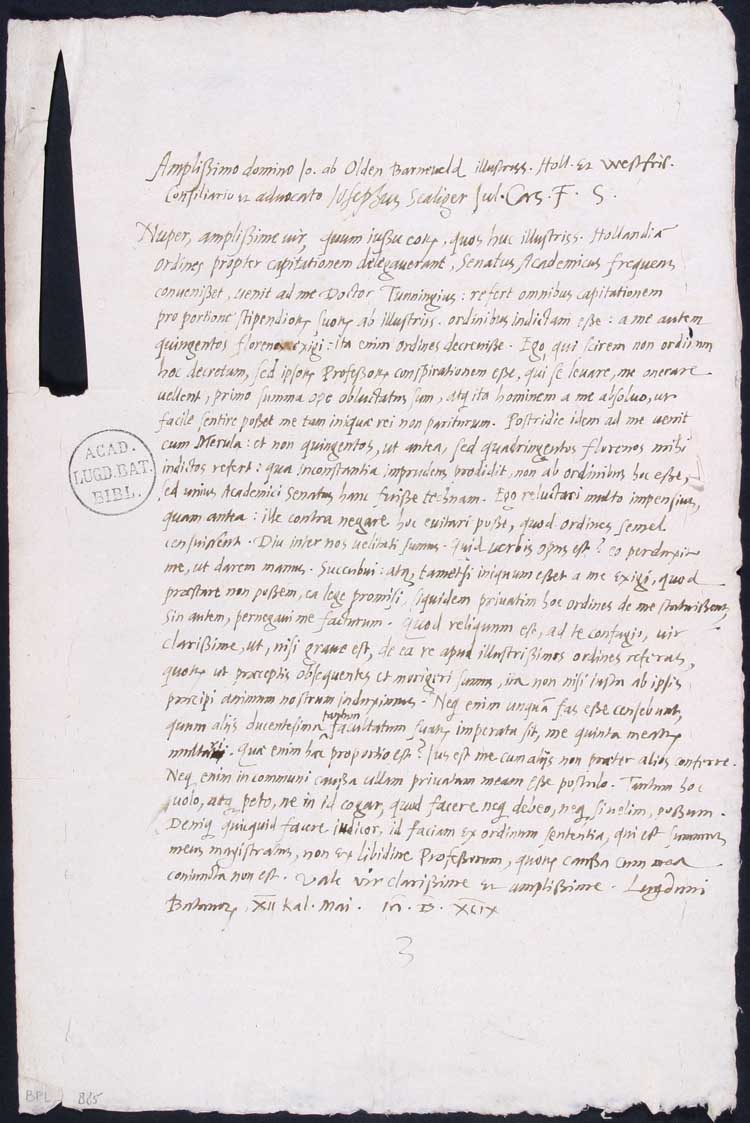 Amplißimo domino Io. ab Olden Barneveld illustriss. Holl. et Westfris.
Consiliario et advocato Iosephus Scaliger Jul. Cæs. F. S.
Nuper, amplißime vir, quum iussu eorum, quos huc illustriss. Hollandiæ
Ordines propter capitationem delegaverant, Senatus Academicus frequens
convenißet, venit ad me Doctor Tunningius: refert omnibus capitationem
pro portione stipendiorum suorum ab illustriss. ordinibus indictam eße: a me autem
quingentos florenos exigi: ita enim ordines decreviße. Ego, qui scirem non ordinum
hoc decretum, sed ipsorum Profeßorum conspirationem eße, qui se levare, me onerare
vellent, primo summa ope obluctatus sum, atq ita hominem a me absolvo, ut
facile sentire poßet me tam iniquæ rei non pariturum. Postridie idem ad me venit
cum Merula: et non quingentos, ut antea, sed quadringentos florenos mihi
indictos refert: qua inconstantia imprudens prodidit, non ab ordinibus hoc eße,
sed unius Academici Senatus hanc fuiße technam. Ego reluctari multo impensius,
quam antea: ille contra negare hoc evitari poße, quod ordines semel
censuißent. Diu inter nos velitati sumus. Quid verbis opus est? eo perduxit
me, ut darem manus. Succubui: atq, tametsi iniquum eßet a me exigi, quod
præstare non poßem, ea lege promisi, siquidem privatim hoc ordines de me statuißent,
sin autem, pernegavi me facturum. Quod reliquum est, ad te confugio, vir
clarißime, ut, nisi grave est, de ea re apud illustrißimos ordines referas,
quorum ut præceptis obsequentes et morigeri sumus, ita non nisi iusta ab ipsis
præcipi animum nostrum induximus. Neq enim unquam fas eße censebunt,
quum alijs ducentesima tantum facultatum suarum imperata sit, me quinta mearum
multari. Quæ enim hæc proportio est? Ius est me cum alijs non præter alios conferre.
Neq enim in communi caußa ullam privatam meam eße postulo. Tantum hoc
volo, atq peto, ne in id cogar, quod facere neq debeo, neq, si velim, poßum.
Deniq quicquid facere iudicor, id faciam ex ordinum sententia, qui est summus
meus magistratus, non ex libidine Profeßorum, quorum caußa cum mea
coniuncta non est. Vale vir clarißime et amplißime. Lugduni
Batavorum XII Kal. Mai. IↃ. D. XCIX
3
ACAD.
LUGD. BAT.
BIBL.
BPL 885